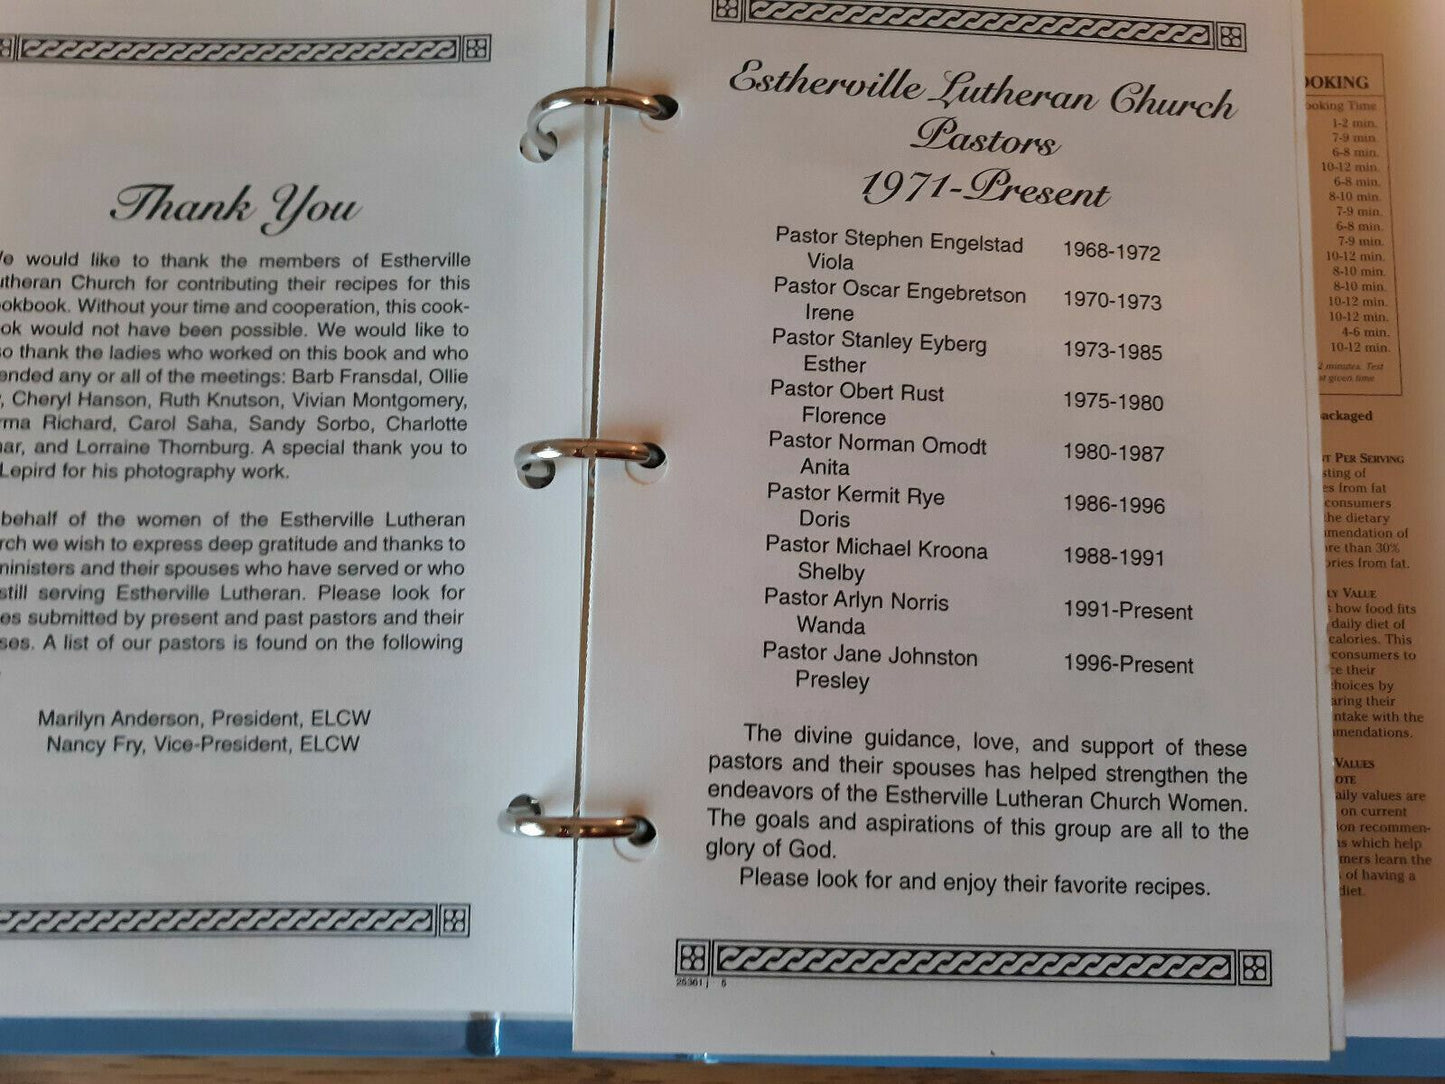 Thank You
would like to thank the members of Estherville
Church for contributing their recipes for this
Without your time and cooperation, this cook-
would not have been possible. We would like to
thank the ladies who worked on this book and who
any or all of the meetings: Barb Fransdal, Ollie
Cheryl Hanson, Ruth Knutson, Vivian Montgomery,
Richard, Carol Saha, Sandy Sorbo, Charlotte
and Lorraine Thornburg. A special thank you to
Lepird for his photography work.
behalf of the women of the Estherville Lutheran
we wish to express deep gratitude and thanks to
ministers and their spouses who have served or who
still serving Estherville Lutheran. Please look for
submitted by present and past pastors and their
A list of our pastors is found on the following
Marilyn Anderson, President, ELCW
Nancy Fry, Vice-President, ELCW
Estherville Lutheran Church
Pastors
1971-Present
Pastor Stephen Engelstad 1968-1972
Viola
Pastor Oscar Engebretson 1970-1973
Irene
Pastor Stanley Eyberg 1973-1985
Esther
Pastor Obert Rust 1975-1980
Florence
Pastor Norman Omodt 1980-1987
Anita
Pastor Kermit Rye 1986-1996
Doris
Pastor Michael Kroona 1988-1991
Shelby
Pastor Arlyn Norris 1991-Present
Wanda
Pastor Jane Johnston 1996-Present
Presley
The divine guidance, love, and support of these
pastors and their spouses has helped strengthen the
endeavors of the Estherville Lutheran Church Women.
The goals and aspirations of this group are all to the
glory of God.
Please look for and enjoy their favorite recipes.
OOKING
ooking Time
1-2 min.
7-9 min.
6-8 min.
10-12 min.
6-8 min.
8-10 min.
7-9 min.
6-8 min.
7-9 min.
10-12 min.
8-10 min.
8-10 min.
10-12 min.
10-12 min.
4-6 min.
10-12 min.
2 minutes. Test
at given time
ackaged
PER SERVING
of
from fat
consumers
the dietary
of
than 30%
from fat.
VALUE
how food fits
daily diet of
calories. This
consumers to
their
choices by
their
intake with the
VALUES
values are
on current
recommen-
which help
learn the
of having a
diet.